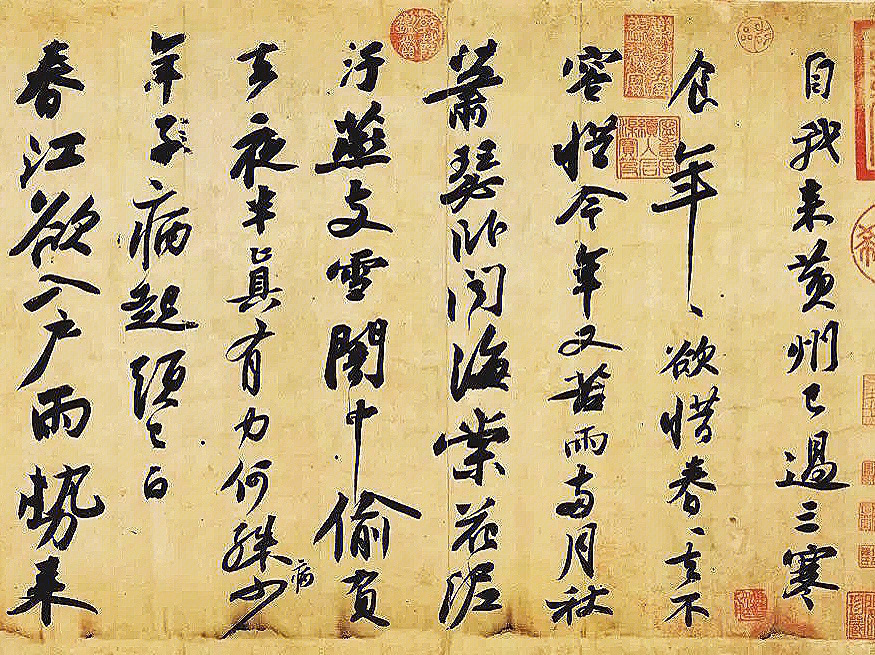 自我來黃州已過三寒
食年々欲惜春々去不
容惜今年又苦雨兩月秋
蕭瑟卧聞海棠花泥
汙燕支雪闇中偷負
去夜半真有力何殊病少
年子病起頭已白
春江欲入户雨勢來